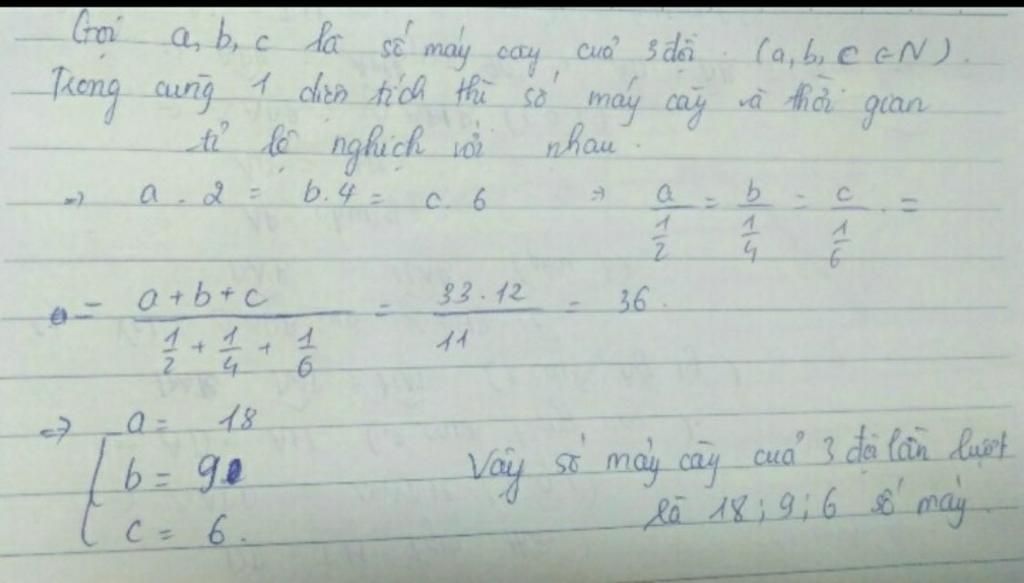 Gọi a, b, c là số máy cày cuả 3 đội. (a, b, c ∈ N).
Trong cùng 1 diện tích thì số máy cày và thời gian
tỉ lệ nghịch với nhau.
=> a . 2 = b. 4 = c. 6 => a/(1/2) = b/(1/4) = c/(1/6) . =
= (a + b + c)/(1/2 + 1/4 + 1/6) = (33 . 12)/11 = 36.
=> { a = 18
b = 9
c = 6.
Vậy số máy cày cuả 3 đội lần lượt
là 18 ; 9 ; 6 số máy.